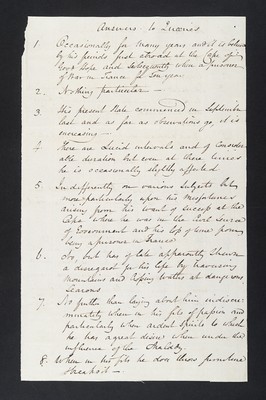 Answers to Queries
1. Occasionally for many years and it is believed
by his friends first attack at the Cape of
Good Hope and Subsequently when a prisoner
of War in France for Ten years
2. Nothing particular —
3. His present State commenced in September
last and as far as observations go it is
increasing —
4. There are Lucid intervals and of Consider-
able duration but even at these times
he is occasionally slightly affected
5. Indifferently on various Subjects but
more particularly upon his misfortunes
arising from his want of success at the
Cape where he was in the Civil Service
of Government and his loss of time from
being a prisoner in France
6. No, but has of late apparently Shewn
a disregard for his life by traversing
Mountains and roping Walks at dangerous
Seasons
7. No further than laying about him indiscri-
minately when in his fits of passion and
particularly when ardent spirits to which
he has a great desire when under the
influence of the Malady
8. When in his fits he does throw furniture
Break it —